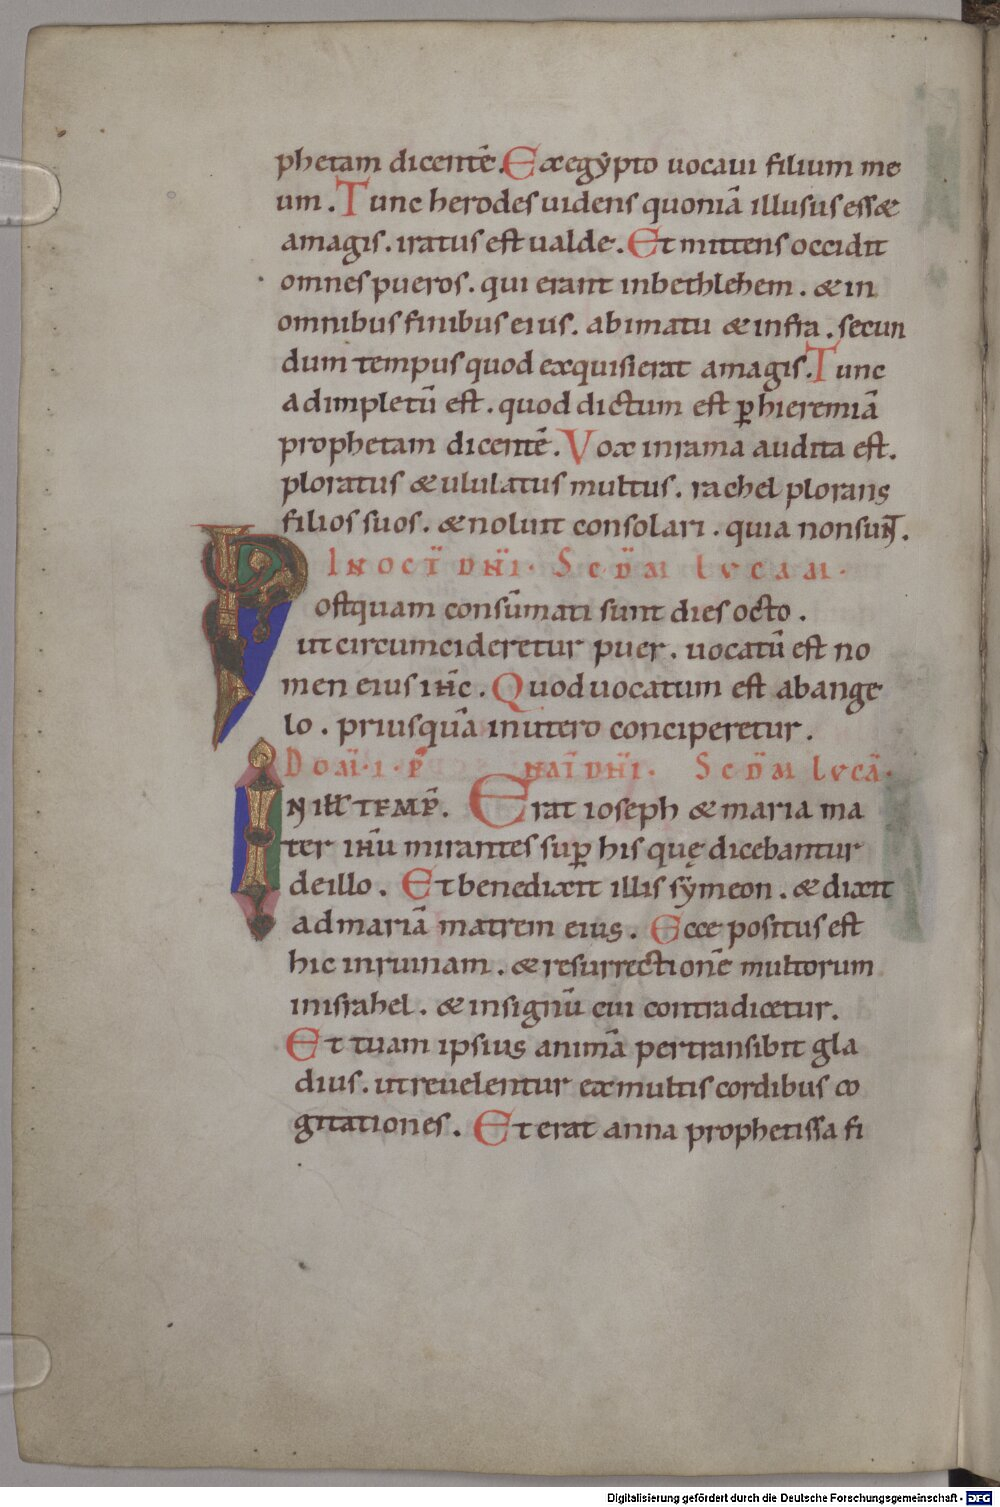 phetam dicentē. Ex egẏpto uocaui filium me
um. Tunc herodes uidens quoniā illusus esset
a magis. iratus est ualde. Et mittens occidit
omnes pueros. qui erant in bethlehem. & in
omnibus finibus eius. a bimatu & infra. secun
dum tempus quod exquisierat a magis. Tunc
adimpletū est. quod dictum est ꝑ hieremiā
prophetam dicentē. Vox in rama audita est.
ploratus & ululatus multus. rachel plorans
filios suos. & noluit consolari. quia non sunt.
IN OCT̄ DN̄I. SCD̄M LVCAM.
Postquam consūmati sunt dies octo.
ut circumcideretur puer. uocatū est no
men eius ihc̄. Quod uocatum est ab ange
lo. priusquā in utero conciperetur.
DOM̄. I. P̄ NAT̄ DN̄I. SCD̄M LVCĀ.
IN ILL TEMP̄. Erat ioseph & maria ma
ter ihū mirantes suꝑ his quę dicebantur
de illo. Et benedixit illis sẏmeon. & dixit
ad mariā matrem eius. Ecce positus est
hic in ruinam. & resurrectionē multorum
in israhel. & in signū cui contradicetur.
Et tuam ipsius animā pertransibit gla
dius. ut reuelentur ex multis cordibus co
gitationes. Et erat anna prophetissa fi
Digitalisierung gefördert durch die Deutsche Forschungsgemeinschaft - DFG